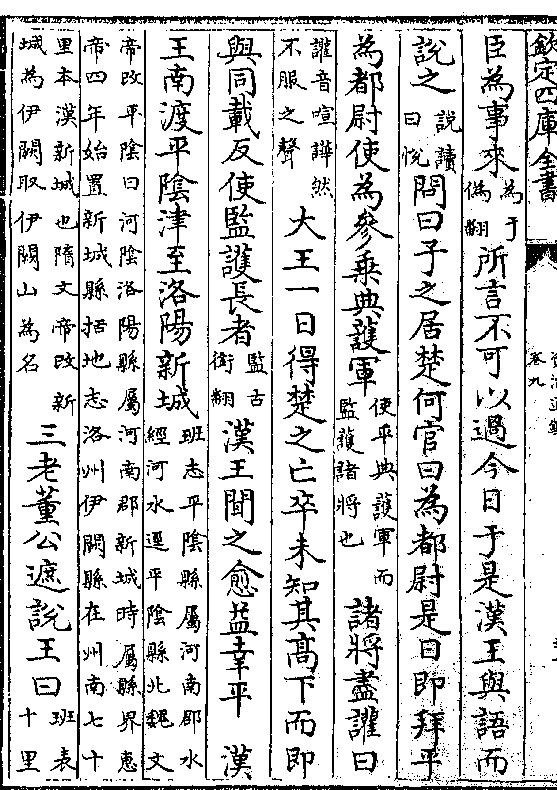 欽定四庫全書
卷九
臣為事來為于偽翻所言不可以過今日于是漢王與語而
說之說讀曰悅問曰子之居楚何官曰為都尉是日即拜平
為都尉使為參乗典護軍使平典護軍而監護諸將也諸將盡讙曰
讙音喧譁然不服之聲大王一日得楚之亡卒未知其髙下而即
與同載反使監護長者監古銜翻漢王聞之愈益幸平 漢
王南渡平隂津至洛陽新城班志平隂縣屬河南郡水經河水逕平隂縣北魏文
帝改平隂曰河隂洛陽縣屬河南郡新城時屬縣界惠
帝四年始置新城縣括地志洛州伊闕縣在州南七十
里本漢新城也隋文帝改新城為伊闕取伊闕山為名三老董公遮說王曰班表十里